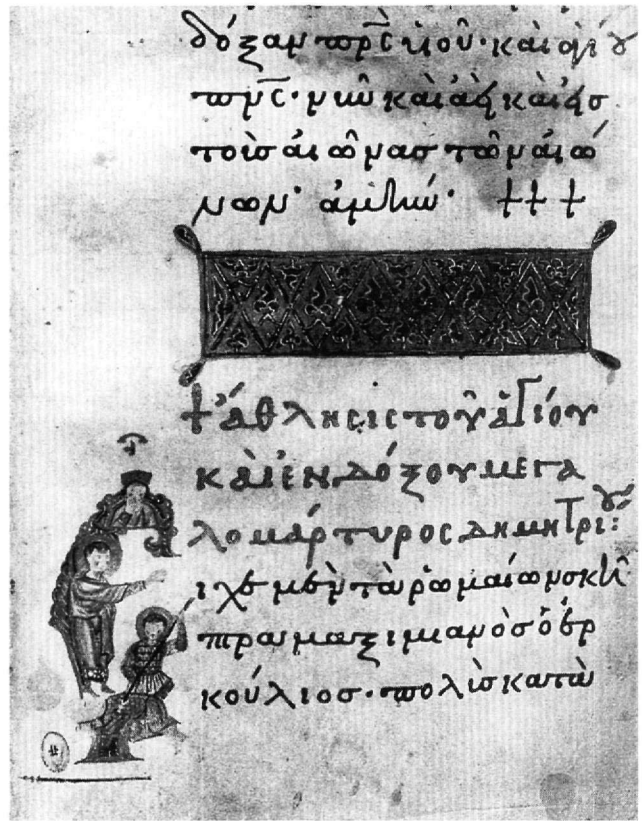 δόξαν πρς κ ιοῦ· καὶ ἁγίου
πνς· νῦν καὶ ἀεὶ καὶ εἰσ
τοὺσ αἰῶνασ τῶν αἰώ
νων· ἀμήν· +++
+ ἄθλησις τοῦ ἁγίου
καὶ ἐνδόξου μεγα
λομάρτυρος Δημητρίου:
Εἶχε μὲν τὰ ῥωμαίων σκῆ
πτρα μαξιμιανὸσ ὁ ἑρ
κούλιοσ· πόλισ κατὰ